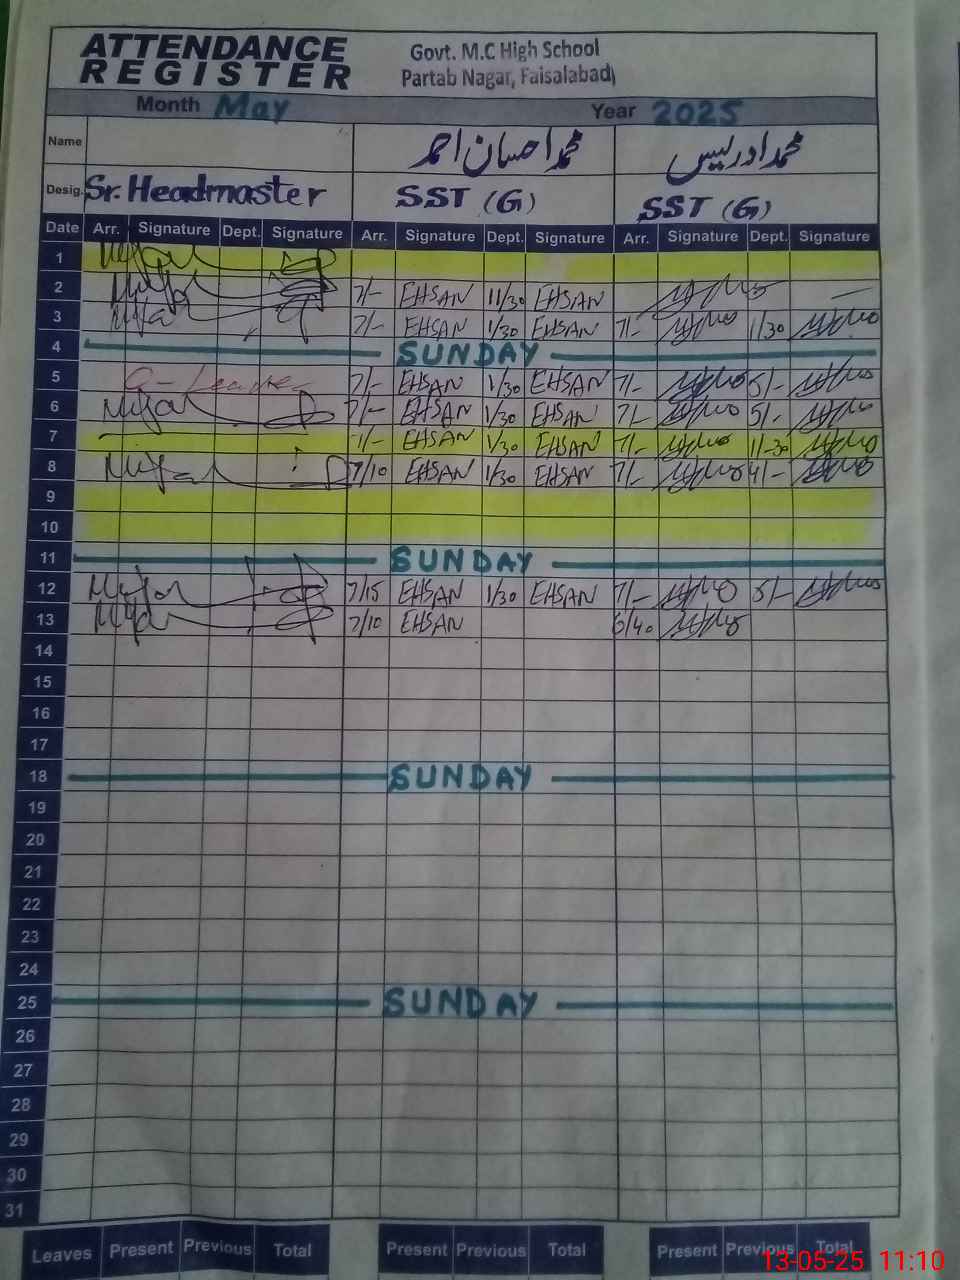 ATTENDANCE REGISTER
Govt. M.C High School
Partab Nagar, Faisalabad
Month May Year 2025
Name محمد احسان احمد محمد ادریس
Desig. Sr. Headmaster SST (G) SST (G)
Date Arr. Signature Dept. Signature Arr. Signature Dept. Signature Arr. Signature Dept. Signature
1
2 7/- EHSAN 11/30 EHSAN
3 7/- EHSAN 1/30 EHSAN 7/- 11/30
4 SUNDAY
5 7/- EHSAN 1/30 EHSAN 7/- 5/-
6 7/- EHSAN 1/30 EHSAN 7/- 5/-
7 EHSAN 1/30 EHSAN 7/- 11-30
8 7/10 EHSAN 1/30 EHSAN 7/- 4/-
9
10
11 SUNDAY
12 7/15 EHSAN 1/30 EHSAN 7/- 5/-
13 7/10 EHSAN 6/40
14
15
16
17
18 SUNDAY
19
20
21
22
23
24
25 SUNDAY
26
27
28
29
30
31
Leaves Present Previous Total Present Previous Total Present Previous Total
13-05-25 11:10